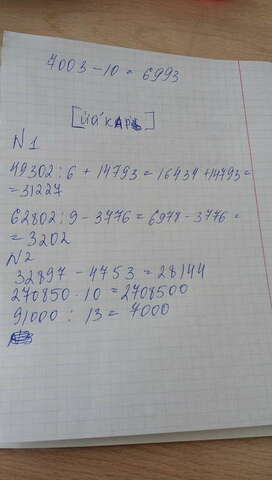 7003-10=6993
[йа'кАРЬ]
N1
49302:6+14793=16434+14793=
=31227
62802:9-3776=6978-3776=
=3202
N2
32897-4753=28144
270850·10=2708500
91000:13=7000